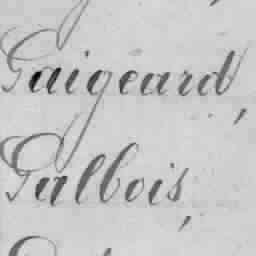 Gaigeard,
Galbois,